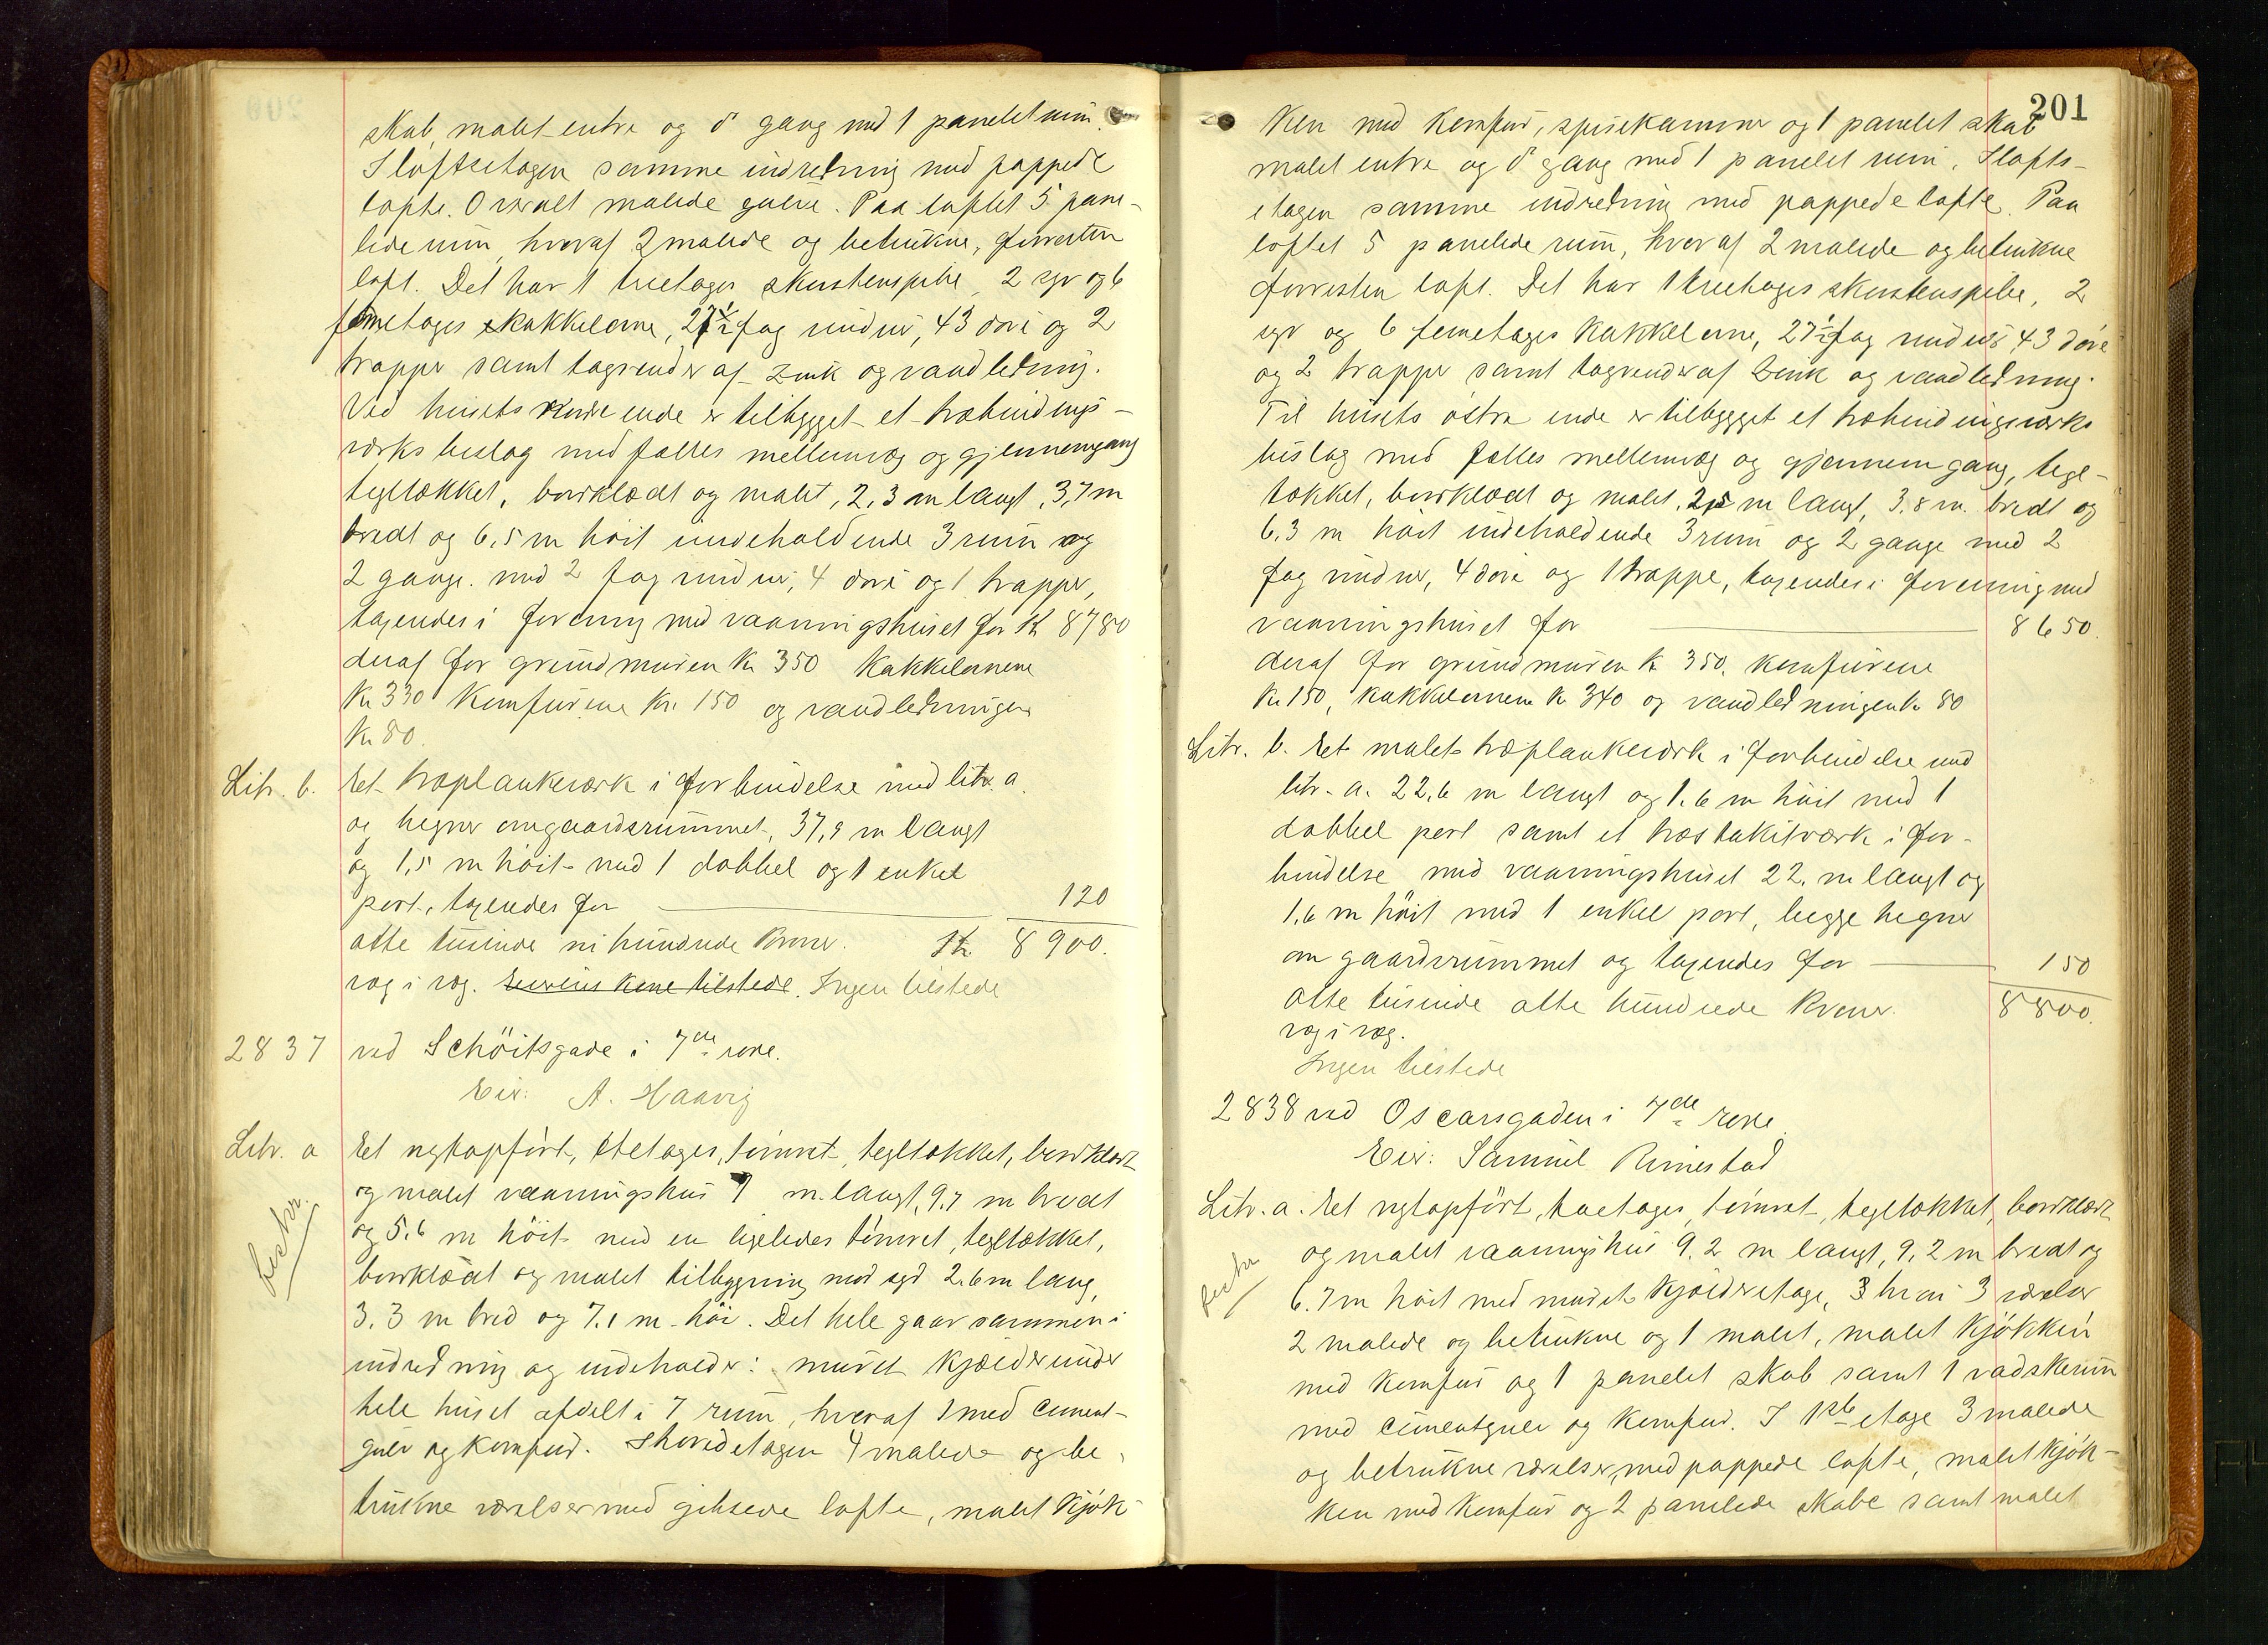 skab, malet entre og do gang med 1 panelet rum.
I loftsetagen samme indredning med pappede
lofte. Overalt malede gulve. Paa loftet 5 pane-
lede rum, hvoraf 2 malede og betrukne, forresten
loft. Det har 1 treetages skorstenspibe, 2 sgr og 6
femetages kakkelovne, 27 1/2 fag vinduer, 43 døre og 2
trapper samt tagrender af zink og vandledning.
Ved husets ende er tilbygget et træbindings-
værks bislag med fælles mellemvæg og gjennemgang
tegltækket, bordklædt og malet, 2,3 m langt, 3,7 m
bredt og 6,5 m høit indeholdende 3 rum og
2 gange. med 2 fag vinduer, 4 døre og 1 trappe,
taxeredes i forening med vaaningshuset for Kr 8780
deraf for grundmuren Kr 350 Kakkelovnene
Kr 330 Komfurene Kr. 150 og vandledningen
Kr 80.
Litr. b. Et træplankeværk i forbindelse med litr. a.
og hegner om gaardsrummet, 37,9 m langt
og 1,5 m høit med 1 dobbel og 1 enkel
port, taxeredes for 120
otte tusinde ni hundrede Kroner. Kr 8900.
væg i væg. Ingen tilstede
2837 ved Schöitsgade i 7de rode.
Eier: A. Haavig
Litr. a Et nyt opført, etetages, tømret, tegltækket, bordklædt
og malet vaaningshus 9 m. langt, 9.7 m bredt
og 5.6 m høit med en ligeledes tømret, tegltækket,
bordklædt og malet tilbygning mod syd 2.6 m lang,
3.3 m bred og 7.1 m høi. Det hele gaar sammen i
indredning og indeholder: muret kjælder under
hele huset afdelt i 7 rum, hvoraf 1 med cement-
gulv og komfur. I hovedetagen 4 malede og be-
trukne værelser med gibsede lofte, malet kjøk-
201
ken med komfur, spisekammer og 1 panelet skab
malet entre og do gang med 1 panelet rum. I lofts-
etagen samme indredning med pappede lofte. Paa
loftet 5 panelede rum, hvoraf 2 malede og betrukne
forresten loft. Det har 1 treetages skorstenspibe, 2
sgr og 6 femetages kakkelovne, 27 1/2 fag vinduer 43 døre
og 2 trapper samt tagrender af zink og vandledning.
Til husets østre ende er tilbygget et træbindingsværks
bislag med fælles mellemvæg og gjennemgang, tegl-
tækket, bordklædt og malet, 2,5 m langt, 3.8 m. bredt og
6.3 m høit indeholdende 3 rum og 2 gange med 2
fag vinduer, 4 døre og 1 trappe, taxeredes i forening med
vaaningshuset for 8650.
deraf for grundmuren Kr 350. komfurene
Kr 150, kakkelovnene Kr 340 og vandledningen Kr 80
Litr. b. Et malet træplankeværk i forbindelse med
litr. a. 22,6 m langt og 1.6 m høit med 1
dobbel port samt et træstakitværk i for-
bindelse med vaaningshuset 22. m langt og
1.6 m høit med 1 enkel port, begge hegner
om gaardsrummet og taxeredes for 150
Otte tusinde otte hundrede Kroner. 8800.
væg i væg.
Ingen tilstede
2838 ved Oscarsgaden i 7de rode
Eier: Samuel Rimestad
Litr. a. Et nyt opført, toetages, tømret, tegltækket, bordklædt
og malet vaaningshus 9.2 m langt, 9,2 m bredt og
6.7 m høit med muret kjælderetage, 3 værelser
2 malede og betrukne og 1 malet, malet kjøkken
med komfur og 1 panelet skab samt 1 vadskerum
med cementgulv og komfur. I 1ste etage 3 malede
og betrukne værelser, med pappede lofte, malet kjøk-
ken med komfur og 2 panelede skabe samt malet